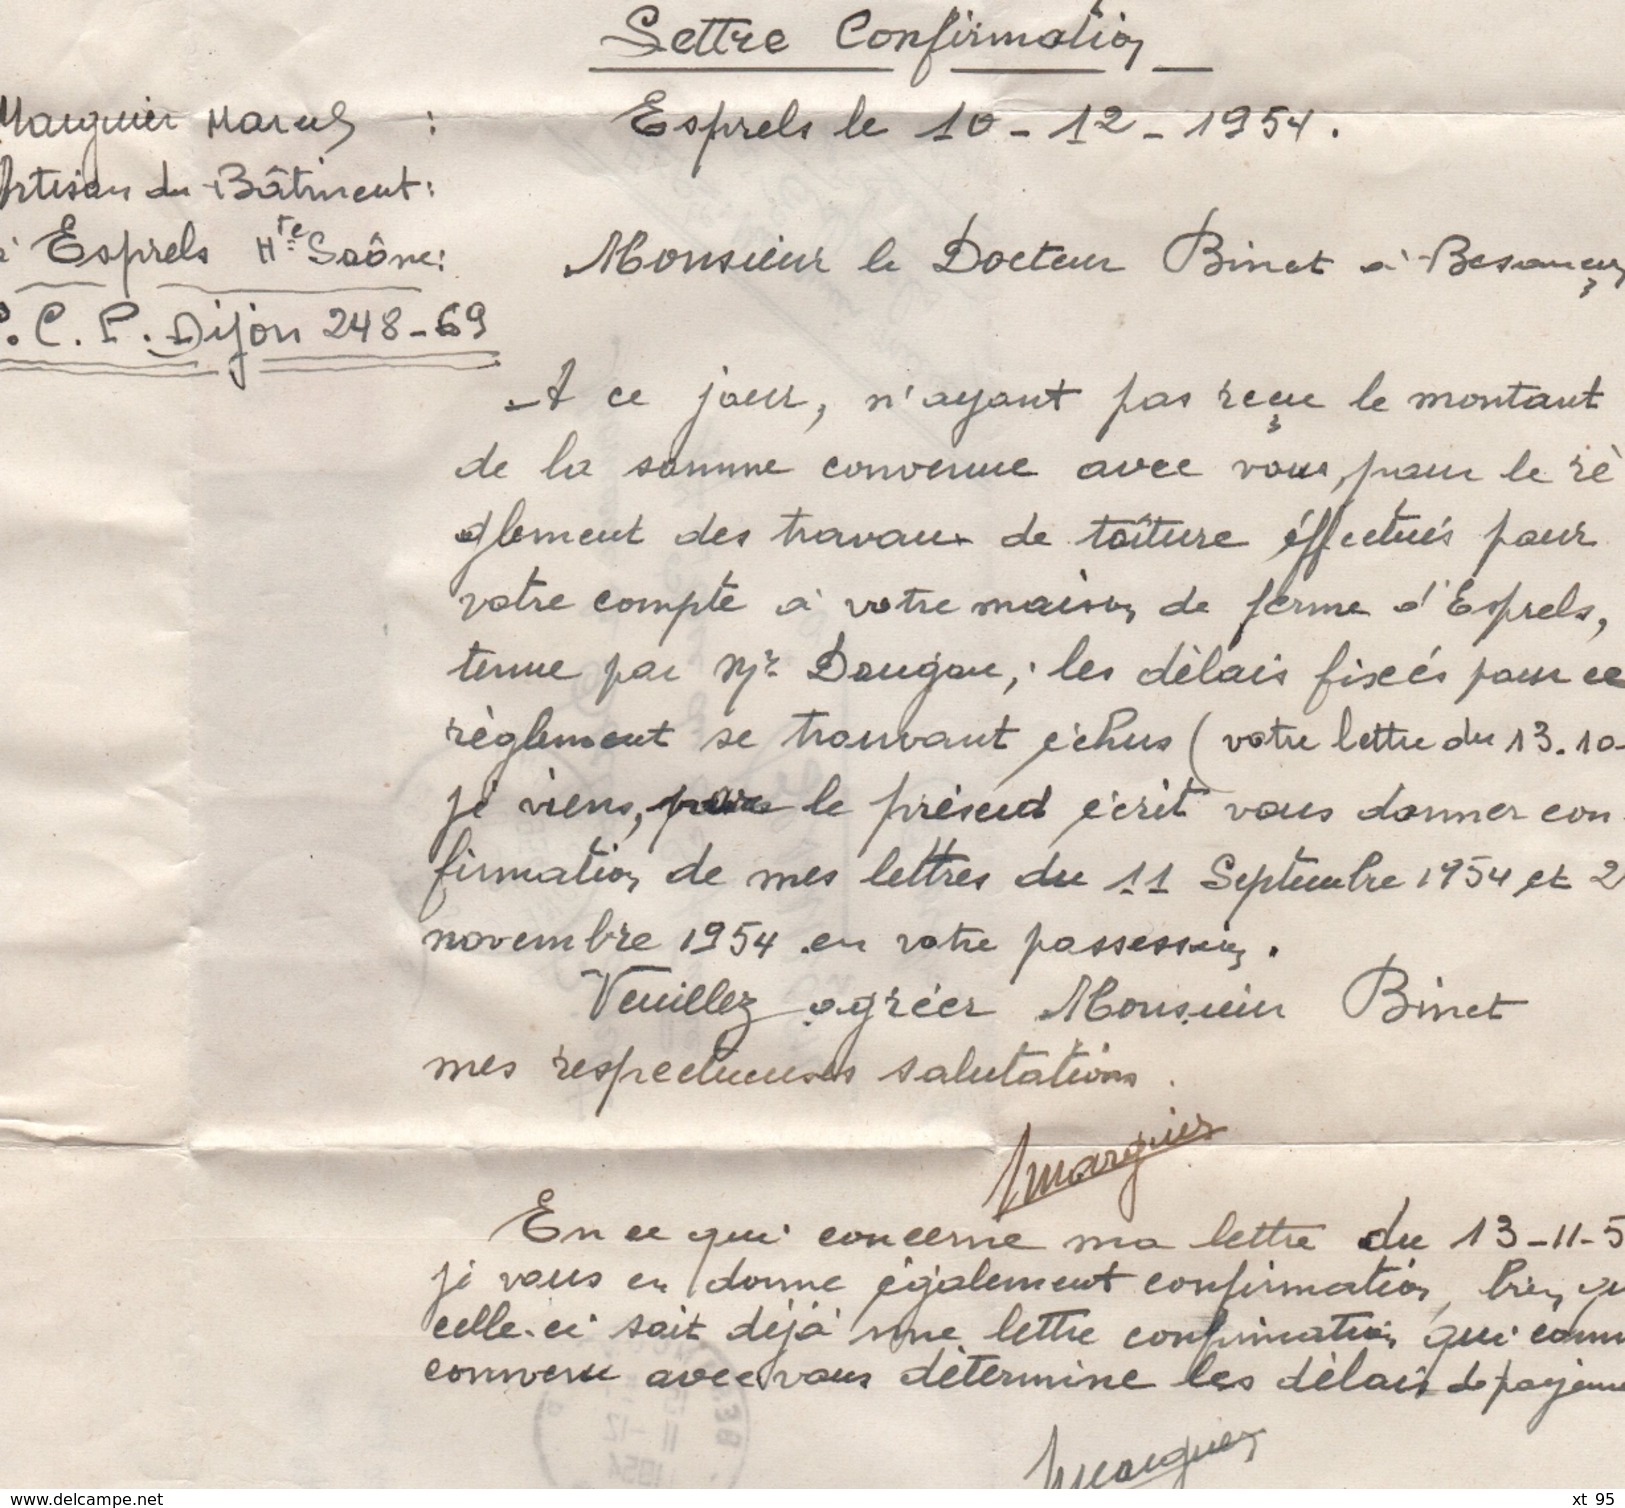 Lettre Confirmation
Marguier Marcel :
Artisan du Bâtiment :
à Esprels Hte Saône :
C. P. Dijon 248-69
Esprels le 10-12-1954.
Monsieur le Docteur Binet à Besançon
A ce jour, n'ayant pas reçu le montant
de la somme convenue avec vous, pour le rè
glement des travaux de toîture éffectués pour
votre compte à votre maison de ferme d'Esprels,
tenue par Mr ; les dèlais fixés pour ce
règlement se trouvant échus (votre lettre du 13.10-
je viens, par le présent écrit vous donner con-
firmation de mes lettres du 11 Septembre 1954 et 2
novembre 1954 en votre possession.
Veuillez agréer Monsieur Binet
mes respectueuses salutations.
Marguier
En ce qui concerne ma lettre du 13-11-5
je vous en donne également confirmation, bien qu
celle-ci soit déjà une lettre confirmation qui comm
convenu avec vous détermine les dèlais de payeme
Marguier
11 -12
1954
xt 95
www.delcampe.net